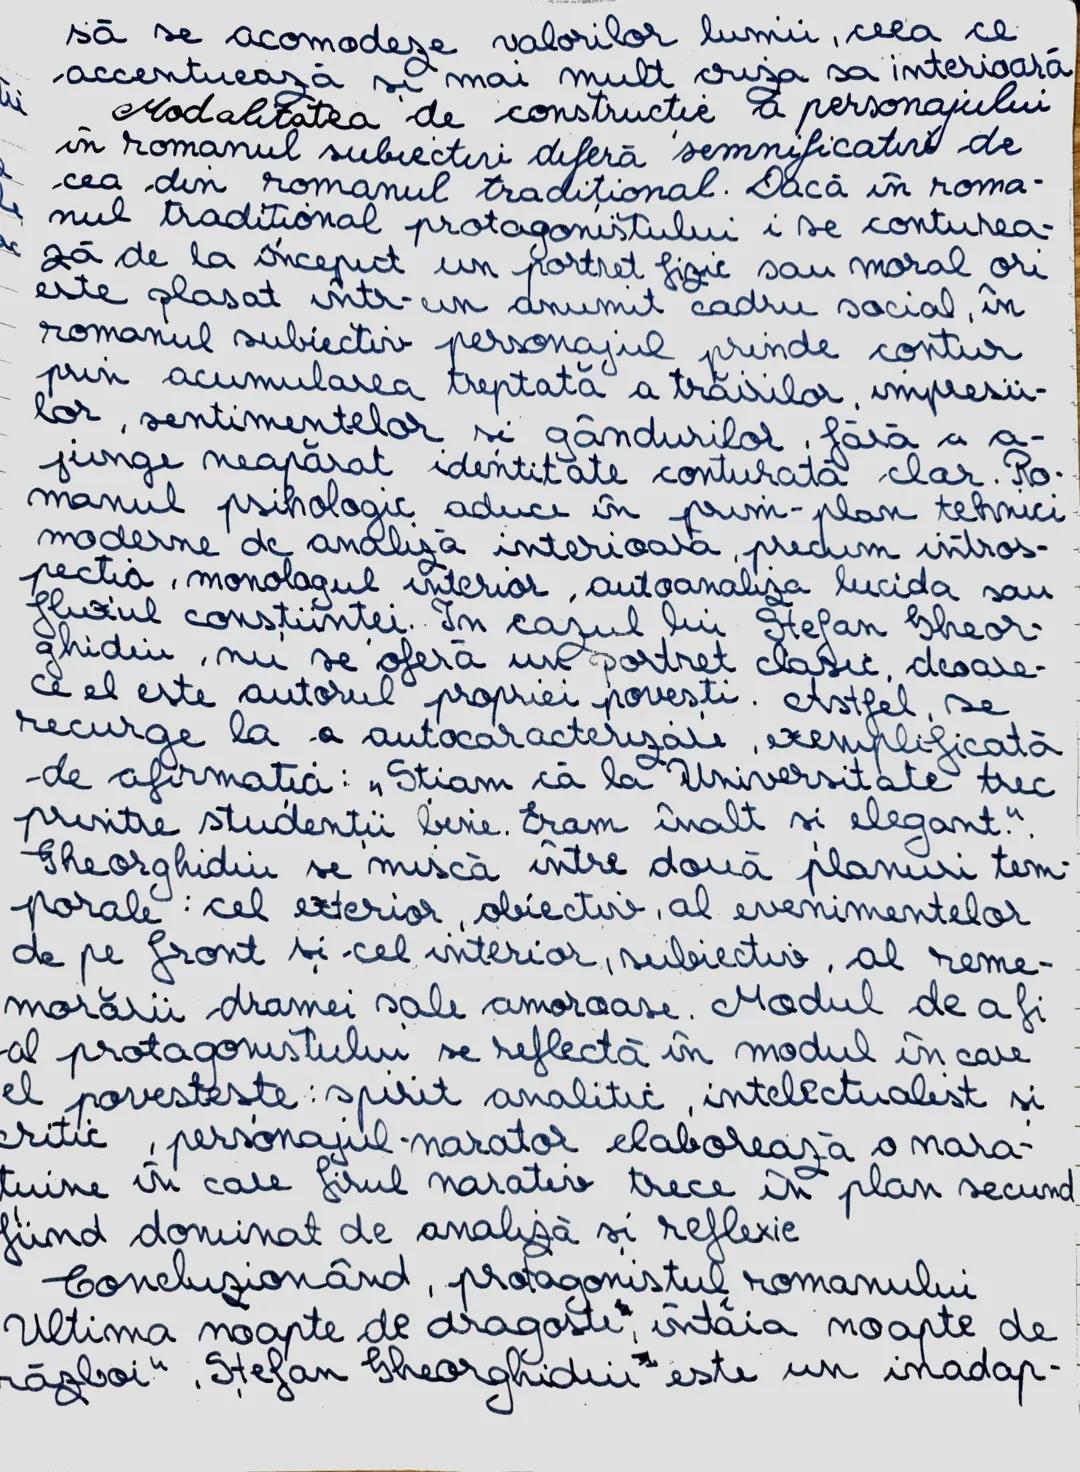 să se acomodeze valorilor lumii, ceea ce
accentuează și mai mult criza sa interioară
Modalitatea de construcție a personajului
în romanul subiectiv diferă semnificativ de
cea din romanul tradițional. Dacă în roma-
nul traditional protagonistului i se conturea-
ză de la început un portret fizic sau moral ori
este plasat într-un anumit cadru social, în
romanul subiectiv personajul prinde contur
prin acumularea treptată a trăirilor, impresii-
lor, sentimentelor si gândurilor, fără a a-
junge neapărat identitate conturată clar. Ro-
manul psihologic aduce în prim-plan tehnici
moderne de analiză interioară, precum intros-
pectia, monologul interior, autoanaliza lucida sau
fluxul constiintei. In cazul lui Ștefan Gheor-
ghidiu, nu se oferă un portret clasic, deoare-
ce el este autorul propriei povesti. Astfel, se
recurge la a autocaracterizare, exemplificată
de afirmatia: „Stiam că la Universitate trec
printre studentii bine. Eram înalt si elegant.".
Gheorghidiu se miscă între două planuri tem-
porale: cel exterior, obiectiv, al evenimentelor
de pe front si cel interior, subiectiv, al reme-
morării dramei sale amoroase. Modul de a fi
al protagonistului se reflectă în modul în care
el povesteste: spirit analitic, intelectualist si
critic, personajul-narator elaborează o nara-
tiune în care firul narativ trece în plan secund
fiind dominat de analiză si reflexie
Concluzionând, protagonistul romanului
Ultima noapte de dragoste, întâia noapte de
război", Ștefan Gheorghidiu este un inadap-